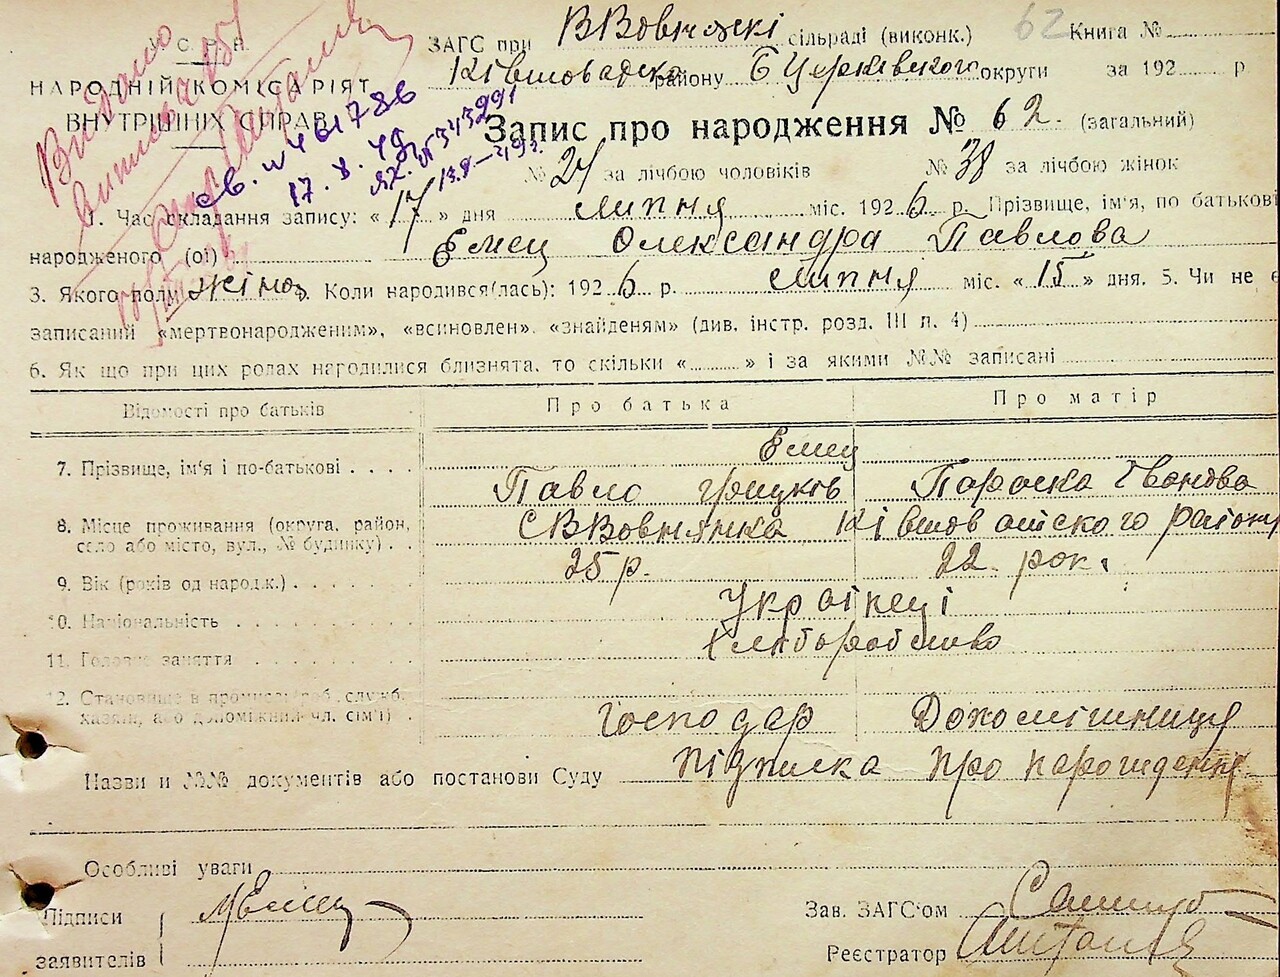 У.С.Р.Р.
НАРОДНІЙ КОМІСАРІЯТ
ВНУТРІШНІХ СПРАВ
Видано
св. № 461786
17. 8. 49
№ 343991
ЗАГС при В Вовнянкі сільраді (виконк.) 62 Книга №
Ківшоватско району Б Церківского округи за 192 р
Запис про народження № 62. (загальний)
№ 24 за лічбою чоловіків № 38 за лічбою жінок
1. Час складання запису: « 17 » дня липня міс. 1926 р. Прізвище, ім'я, по батькові
народженого (ої) Емец Олександра Павлова
3. Якого полу жіноч. Коли народився(лась): 1926 р. липня міс. « 15 » дня. 5. Чи не є
записаний «мертвонародженим», «всиновлен», «знайденям» (див. інстр. розд. III п. 4)
6. Як що при цих родах народилися близнята, то скільки « » і за якими №№ записані
Відомості про батьків Про батька Про матір
Емец
7. Прізвище, ім'я і по-батькові . . . . Павло Грицків Пораска Іванова
8. Місце проживання (округа, район, С В Вовнянка Ківшоватского району
село або місто, вул., № будинку) . .
9. Вік (років од народ.к.) . . . . . . 25 р. 22 рок.
10. Національність . . . . . . . . Українеці
11. Головне заняття . . . . . . . . Хліборобство
12. Становище в промислі (роб. служб.
хазяїн, або допоміжний чл. сім'ї) . Господар Допомішниця
Назви и №№ документів або постанови Суду Підписка про нарождення
Особливі уваги
Підписи
заявителів
МЕмец
Зав. ЗАГС'ом
Реєстратор